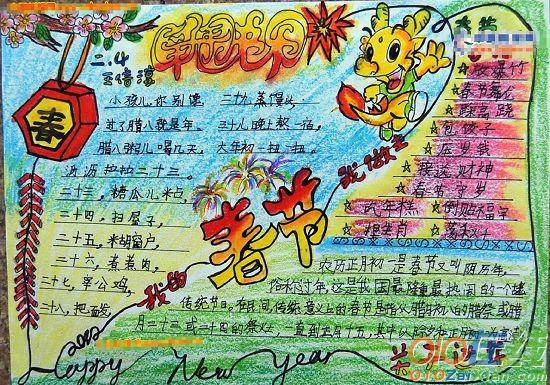 二.4
春
小孩儿,你别馋,
过了腊八就是年。
腊八粥儿喝几天,
沥沥拉拉二十三。
二十三,糖瓜儿粘,
二十四,扫屋子,
二十五,米胡窗户
二十六,煮煮肉,
二十七,宰公鸡,
二十八,把面发
二十九,蒸馒头,
三十儿晚上熬一宿,
大年初一扭一扭。
我的
春节
我做主
☆放爆竹
☆春节舞龙
☆踩高跷
☆包饺子
☆压岁钱
☆接送财神
☆春节守岁
☆吃年糕
☆倒贴福字
农历正月初一是春节又叫阴历年,
俗称过年,这是我国最隆重最热闹的一个
传统节日。在民间,传统意义上的春节是指从腊月初八的腊祭或腊
月二十三或二十四的祭灶,一直到正月十五,其中以除夕和正月初一为高潮
Happy New Year